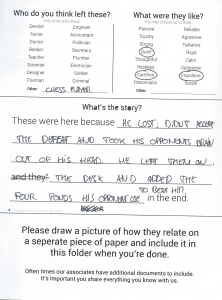 Who do you think left these?
What were they like?
Dentist Engineer
Nurse Accountant
Doctor Politician
Banker Secretary
Teacher Plumber
Scientist Electrician
Designer Soldier
Fireman Criminal
Other CHESS PLAYER
Passive Reliable
Touchy Agressive
Strong Talkative
Quiet Rigid
Thoughtful Calm
Restless Optimistic
Carefree Impulsive
Pessimistic Social
Other
What's the story?
These were here because HE LOST, DIDN'T ACCEPT
THE DEFEAT AND TOOK HIS OPPONENTS BRAIN
OUT OF HIS HEAD. HE LEFT THEM ON
and they THE DESK AND ADDED THE
TO BEAT HIM,
FOUR HIS OPPONENT in the end.
Please draw a picture of how they relate on
a seperate piece of paper and include it in
this folder when you're done.
Often times our associates have additional documents to include.
It's important you share everything you know with us.